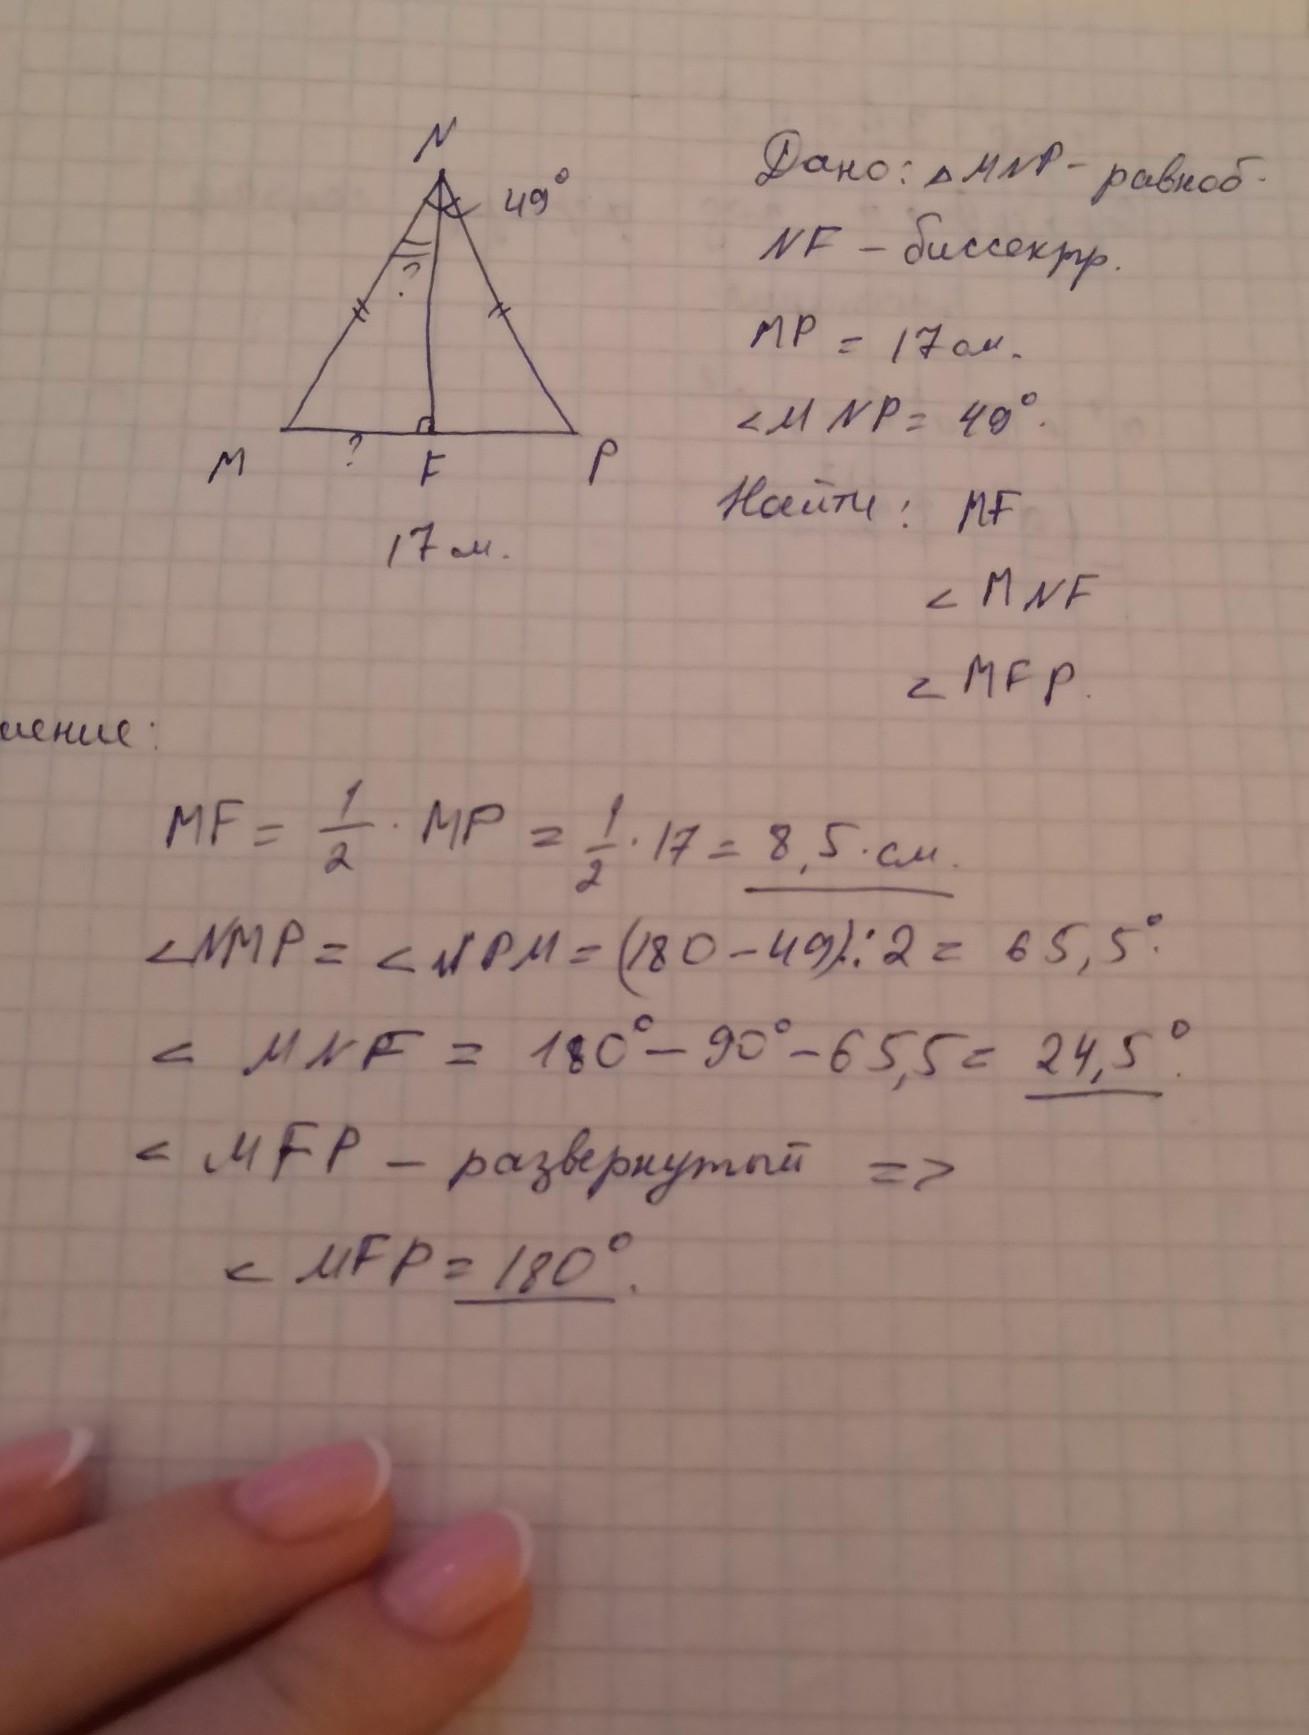 N
49°
?
M
?
F
P
17 м.
Дано: △MNP - равноб.
NF - биссектр.
MP = 17 см.
<MNP = 49°.
Найти: MF
<MNF
<MFP.
шение:
MF = 1/2 · MP = 1/2 · 17 = 8,5 · см.
<NMP = <NPM = (180 - 49) : 2 = 65,5°.
< MNF = 180° - 90° - 65,5 = 24,5°.
< MFP - развернутый =>
< MFP = 180°.